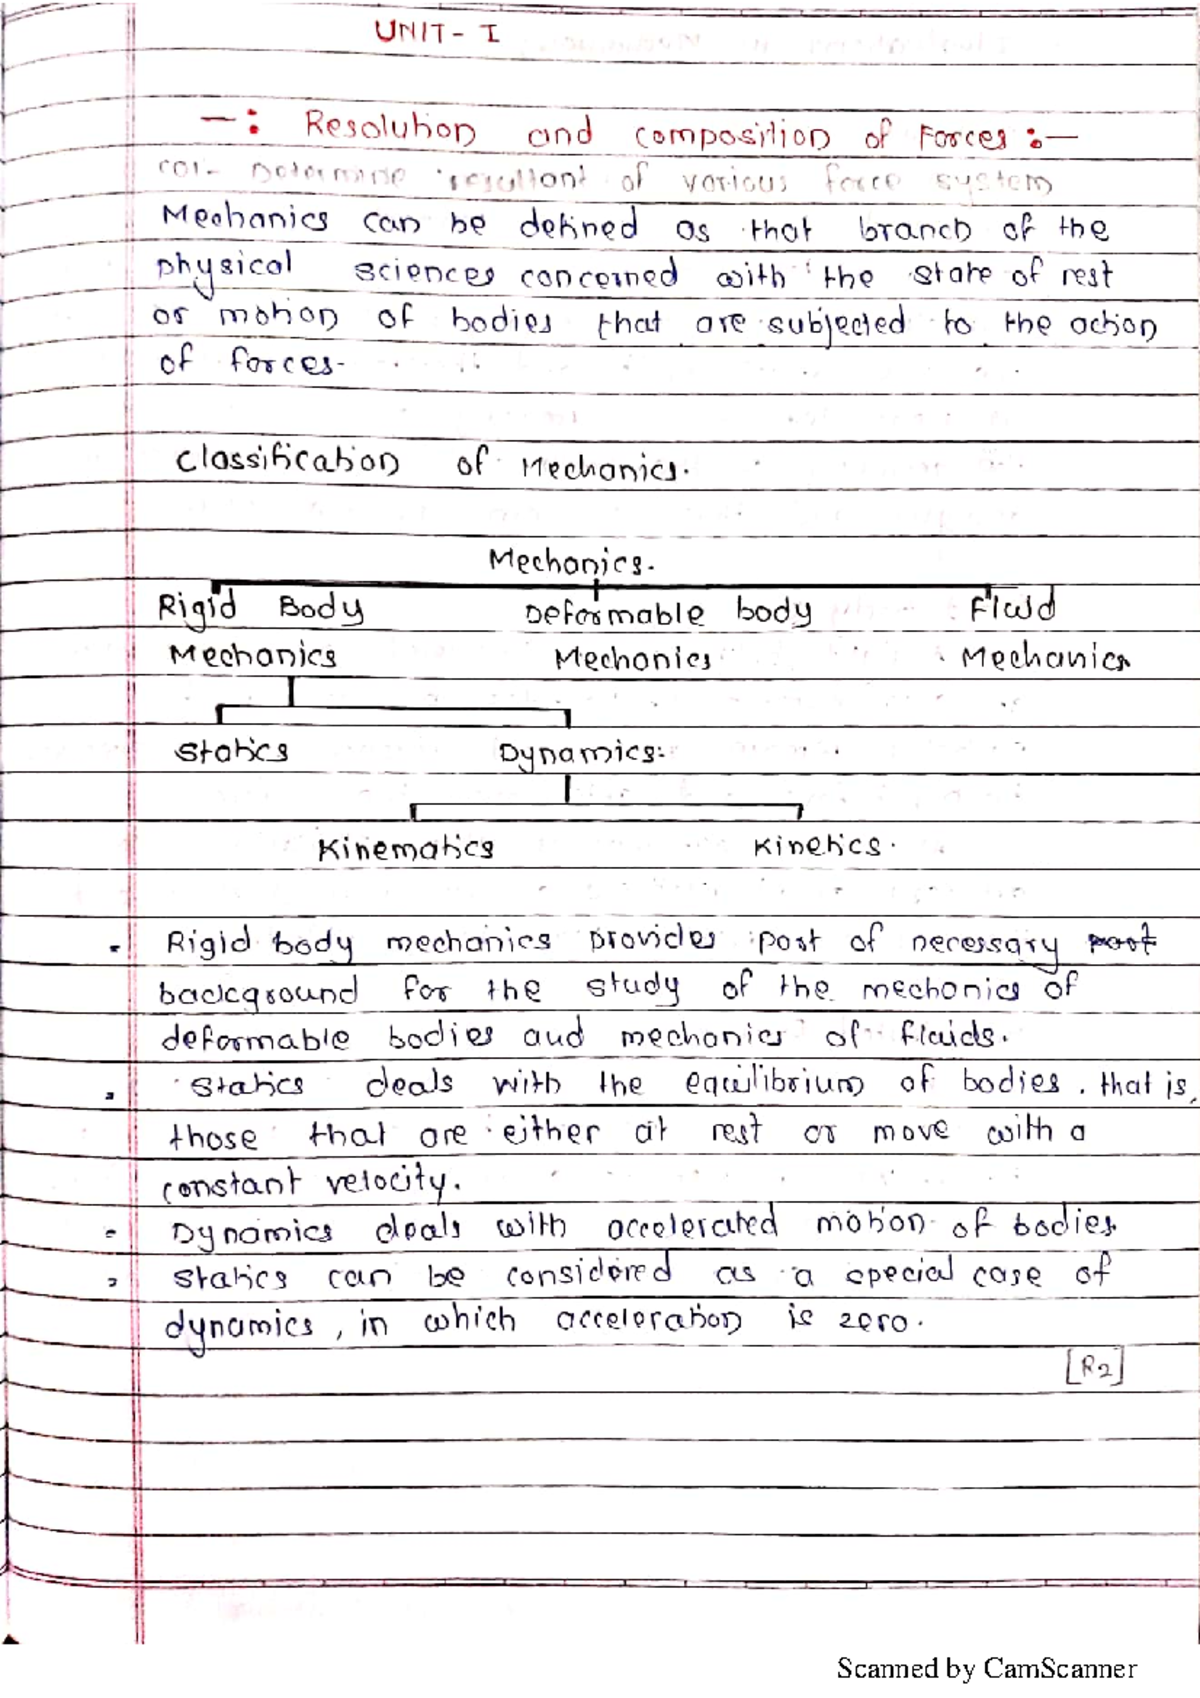 UNIT- I
-: Resolution and composition of Forces :-
CO1- Determine resultant of various force system
Mechanics can be defined as that branch of the
physical sciences concerned with the state of rest
or motion of bodies that are subjected to the action
of forces-
Classification of Mechanics.
Mechanics.
Rigid Body Deformable body Fluid
Mechanics Mechanics Mechanics
Statics Dynamics.
Kinematics Kinetics.
- Rigid body mechanics provides part of necessary
background for the study of the mechanics of
deformable bodies and mechanics of fluids.
- Statics deals with the equilibrium of bodies. that is,
those that are either at rest or move with a
constant velocity.
- Dynamics deals with accelerated motion of bodies.
- Statics can be considered as a special case of
dynamics, in which acceleration is zero.
[R2]
Scanned by CamScanner